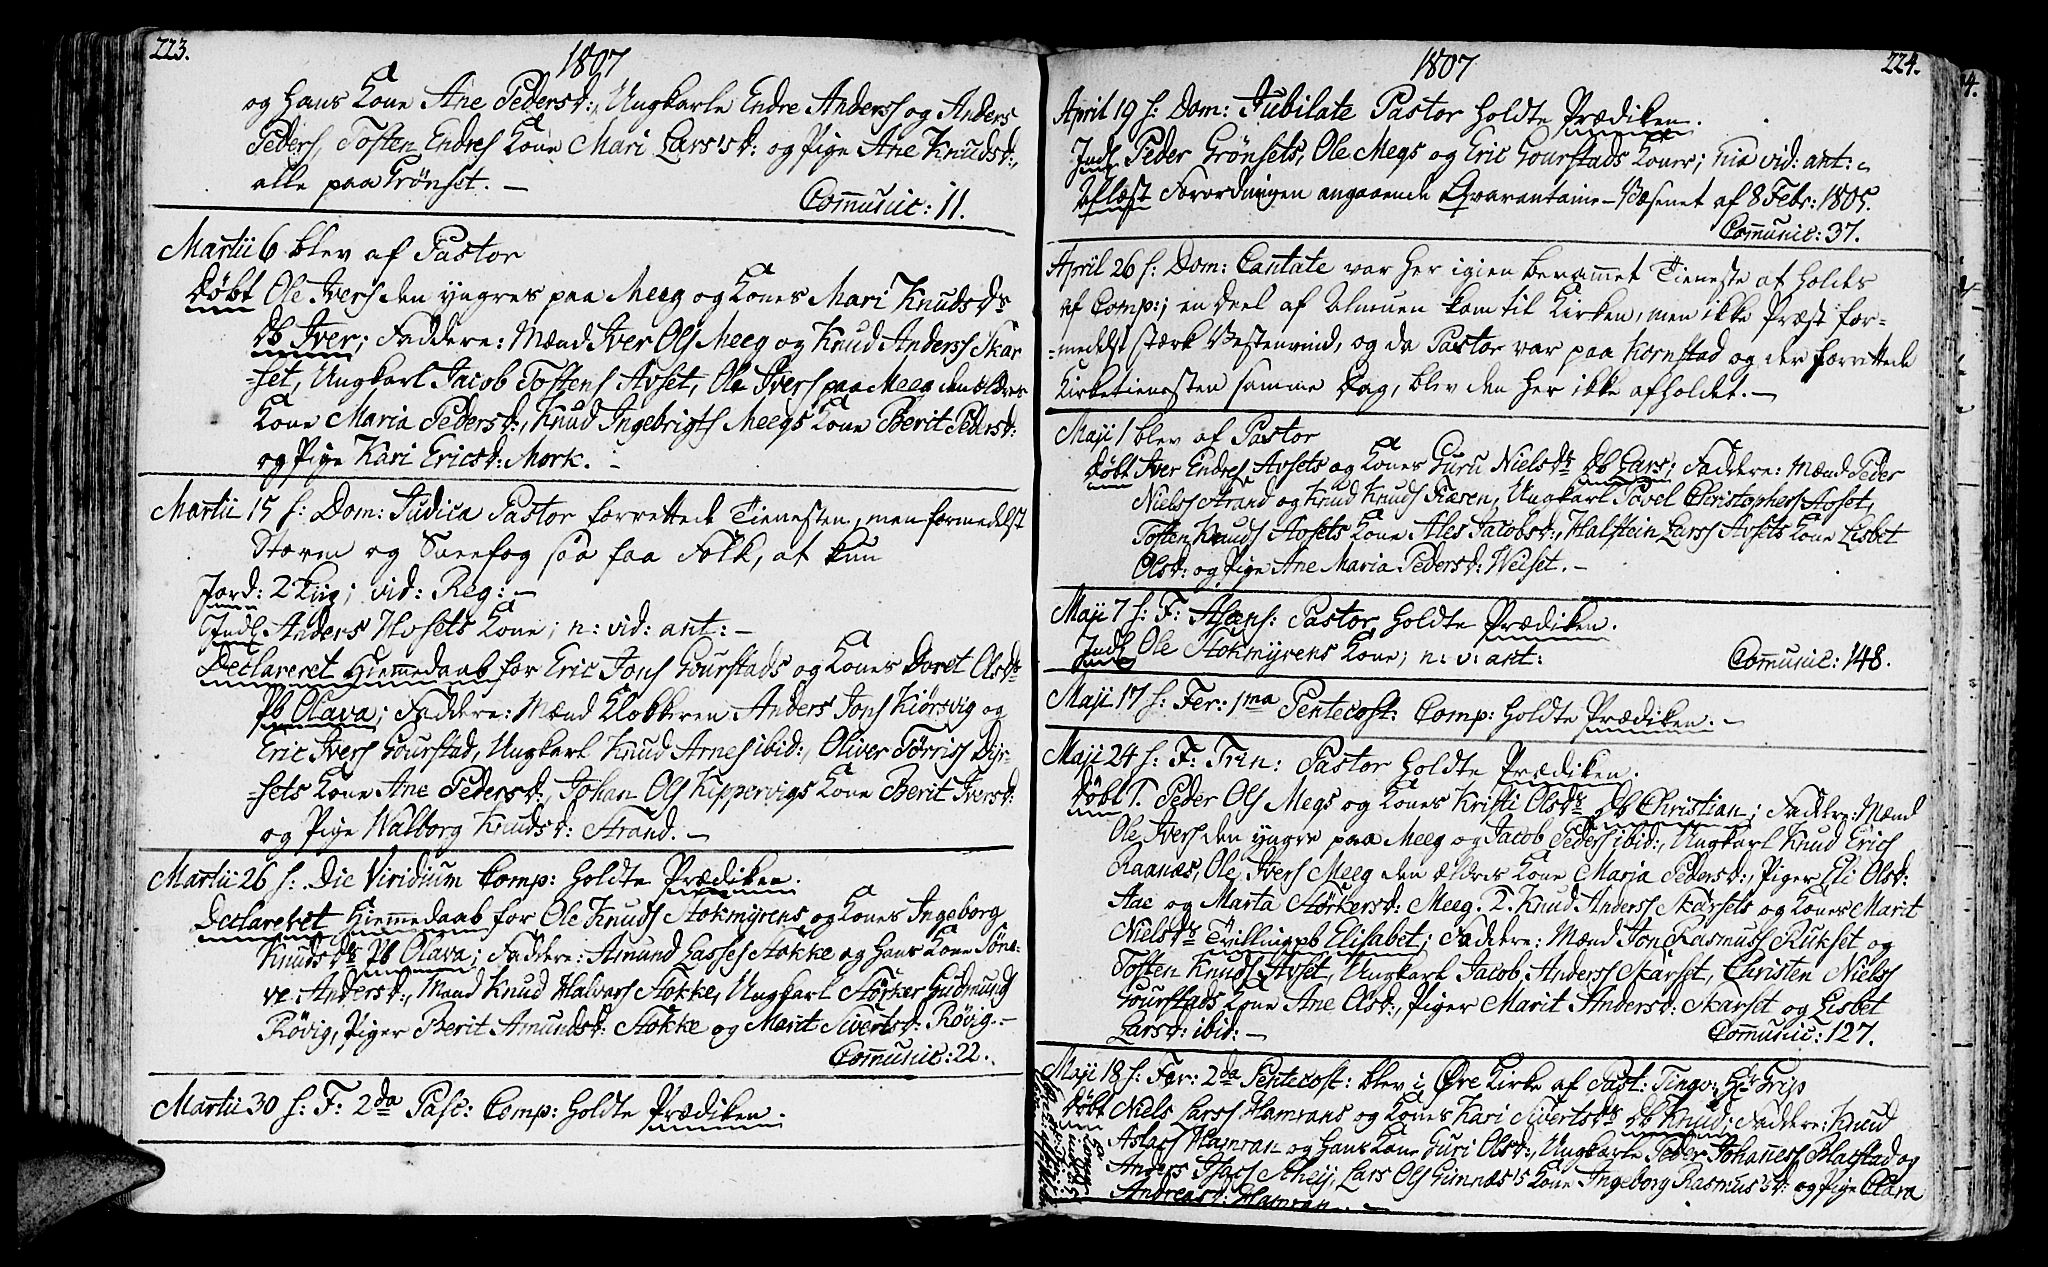 223.
1807
og hans Kone Ane Pedersd:, Ungkarle Endre Anders og Anders
Peders, Tosten Endres Kone Mari Larsd: og Pige Ane Knudsd:,
alle paa Grönset. -
Communic: 11.
Martii 6 blev af Pastor
Döbt Ole Ivers den yngres paa Meeg og Kones Mari Knudsdr
Db Iver; Faddere: Mænd Iver Ols Meeg og Knud Anders Skar
=set, Ungkarl Jacob Tostens Avset, Ole Ivers paa Meeg den ældres
Kone Maria Pedersd:, Knud Ingebrigts Meegs Kone Berit Pedersd:
og Pige Kari Ericsd: Mork. -
Martii 15 s: Dom: Judica Pastor forrettede Tienesten, men formedelst
Storm og Sneefog saa faa Folk, at kun
Jord: 2 Liig; vid: Reg: -
Indl. Anders Hvsets Kone; n: vid: ant: -
Declareret Hiemmedaab for Eric Jons Gourstads og Kones Doret Olsdr
Pb Olava; Faddere: Mænd Klokkeren Anders Jons Kiörsvig og
Eric Ivers Gourstad, Ungkarl Knud Arnes ibid:, Oliver Törris Dyr-
=sets Kone Ane Pedersd:, Johan Ols Kippervigs Kone Berit Iversd:
og Pige Walborg Knudsd: Strand. -
Martii 26 s: Die Viridium Comp: holdte Prædiken.
Declareret Hiemmedaab for Ole Knuds Stokmyrens og Kones Ingeborg
Knudsdr Pb Olava; Faddere: Amund Lasses Stokke og hans Kone Söne-
ve Andersd:, Mand Knud Halvors Stokke, Ungkarl Störker Gudmunds
Rövig, Piger Berit Amundsd: Stokke og Marit Sivertsd: Rövig. -
Communic: 22.
Martii 30 s: F: 2da Pasc: Comp: holdte Prædiken.
224.
1807
April 19 s: Dom: Jubilate Pastor holdte Prædiken.
Indl Peder Grönsets, Ole Megs og Eric Gourstads Koner; hic vid: ant: -
Aflæst Forordningen angaaende Qvarantaine-Væsenet af 8 Febr: 1805.
Communic: 37.
April 26 s: Dom: Cantate var her igien berammet Tieneste at holdes
af Comp:; en Deel af Almuen kom til Kirken, men ikke Præst for-
=medelst stærk Vestenvind, og da Pastor var paa Kornstad og der forrettede
Kirketienesten samme Dag, blev den her ikke afholdet. -
Maji 1 blev af Pastor
Döbt Iver Endres Avsets og Kones Guru Nielsdr Db Lars; Faddere: Mænd Peder
Niels Strand og Knud Knuds Furen, Ungkarl Povel Christophers Avset,
Tosten Knuds Avsets Kone Ales Jacobsd:, Halstein Lars Avsets Kone Lisbet
Olsd: og Pige Ane Maria Pedersd: Weiset. -
Maji 7 s: F: Ascens: Pastor holdte Prædiken.
Indl Ole Stokmyrens Kone; n: v: ant:
Communic: 148.
Maji 17 s: Fer: 1ma Pentecost: Comp: holdte Prædiken. -
Maji 24 s: F: Trin: Pastor holdte Prædiken.
Döbt 1. Peder Ols Megs og Kones Kristi Olsdr Db Christian; Faddere: Mænd
Ole Ivers den yngre paa Meeg og Jacob Peders ibid:, Ungkarl Knud Erics
Raanæs, Ole Ivers Meeg den ældres Kone Maria Pedersd:, Piger Eli Olsd:
Aae og Marta Störkersd: Meeg. 2. Knud Anders Skarsets og Kones Marit
Nielsdr Tvillingpb Elisabet; Faddere: Mænd Jon Rasmuss Rukset og
Tosten Knuds Avset, Ungkarl Jacob Anders Skarset, Christen Niels
Gourstads Kone Ane Olsd:, Piger Marit Andersd: Skarset og Lisbet
Larsd: ibid: -
Communic: 127.
Maji 18 s: Fer: 2da Pentecost: blev i Öre Kirke af Past: Tingv: Hr Friis
Döbt Niels Lars Hamrans og Kones Kari Sivertsdr Db Knud; Faddere: Knud
Aslags Hamran og hans Kone Guri Olsd:, Ungkarle Peder Johannes Blakstad og
Anders Isacs Scheij, Lars Ols Gimnæs's Kone Ingeborg Rasmusd: og Pige Clara
Andreasd: Hamran. -